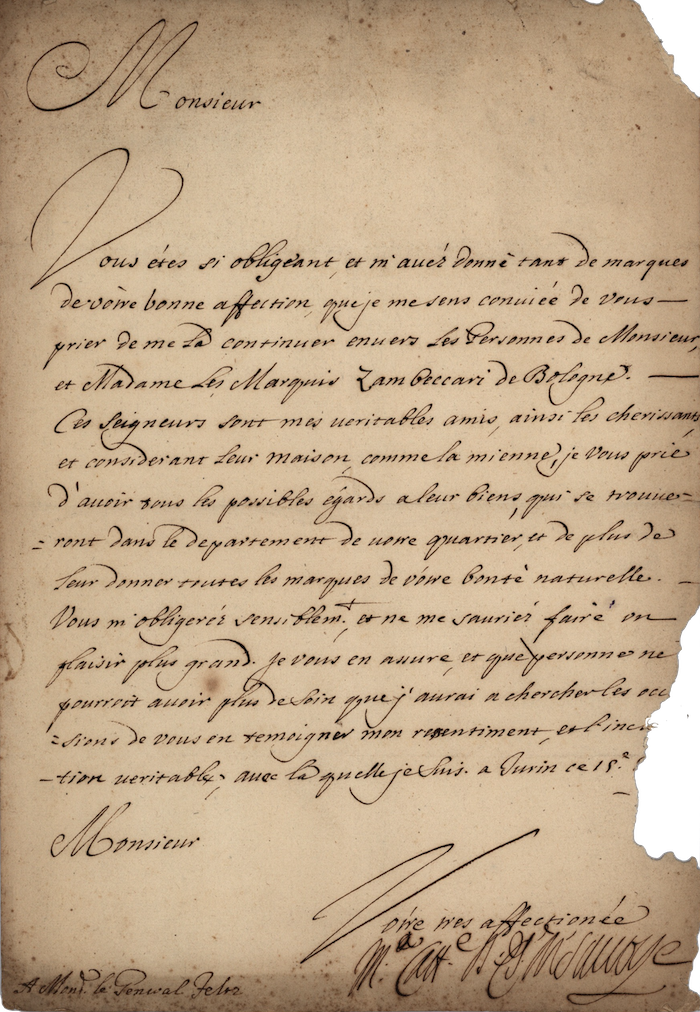 Monsieur
Vous étes si obligeant, et m'avéz donné tant de marques
de vôtre bonne affection, que je me sens conviée de vous
prier de me la continuer envers les Personnes de Monsieur,
et Madame les Marquis Zambeccari de Bologne.
Ces seigneurs sont mes veritables amis, ainsi les cherissant,
et considerant leur maison, comme la mienne, je vous prie
d'avoir tous les possibles égards a leur biens, qui se trouve-
=ront dans le departement de votre quartier, et de plus de
leur donner toutes les marques de vôtre bonté naturelle.
Vous m'obligeréz sensiblem.t, et ne me sauriéz faire un
plaisir plus grand. Je vous en assure, et que personne ne
pourroit avoir plus de soin que j'aurai a chercher les occ
=sions de vous en temoigner mon resentiment, et l'inc
-tion veritable, avec la quelle je suis. a Turin ce 15.e
Monsieur
Votre tres affectionée
M.a Catt.e de Savoye
A Mons.r le General Feltz